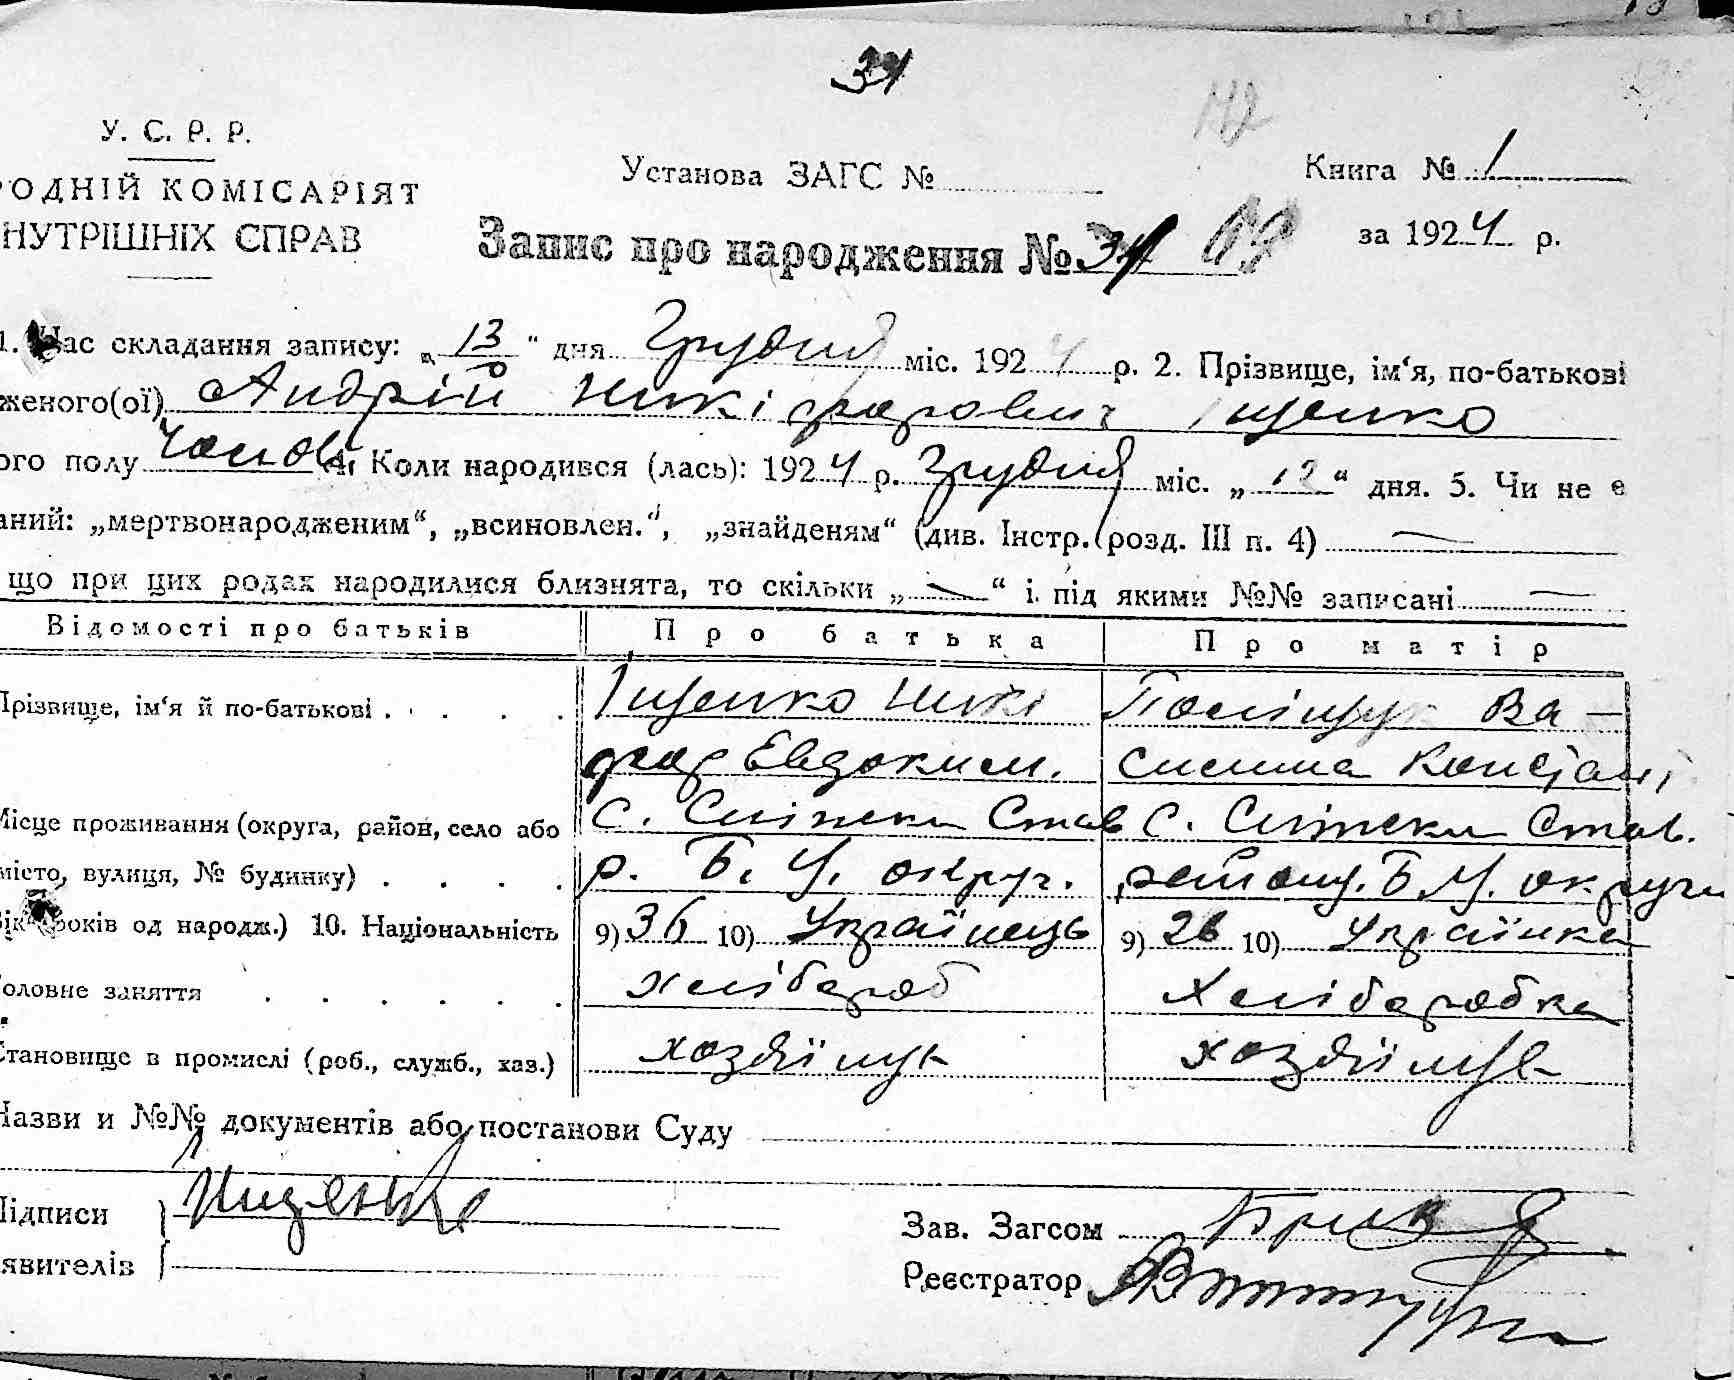 34
У. С. Р. Р.
РОДНІЙ КОМІСАРІЯТ
НУТРІШНІХ СПРАВ
Установа ЗАГС №
Книга № 1
Запис про народження № 34
за 1924 р.
1. Час складання запису: „13“ дня Грудня міс. 1924 р. 2. Прізвище, ім‘я, по-батькові
женого(ої) Андрій Никіфорович Іщенко
ого полу чолов. 4. Коли народився (лась): 1924 р. Грудня міс. „12“ дня. 5. Чи не є
аний: „мертвонародженим“, „всиновлен.“, „знайденям“ (див. Інстр. розд. III п. 4) —
що при цих родах народилися близнята, то скільки „—“ і під якими №№ записані —
Відомості про батьків Про батька Про матір
Прізвище, ім‘я й по-батькові . . . . . Іщенко Никі Поліщук Ва—
фор Евдоким. силина Констант
Місце проживання (округа, район, село або С. Сніжки Став С. Сніжки Став.
місто, вулиця, № будинку) . . . . р. Б. Ц. округ. району. Б Ц. округи
Вік (років од народж.) 10. Національність 9) 36 10) Українець 9) 26 10) Українка
Головне заняття . . . . . . хлібароб Хлібаробка
Становище в промислі (роб., служб., хаз.) хозяїнує хозяїнує
Назви и №№ документів або постанови Суду
Підписи Іщенко
явителів
Зав. Загсом
Реєстратор